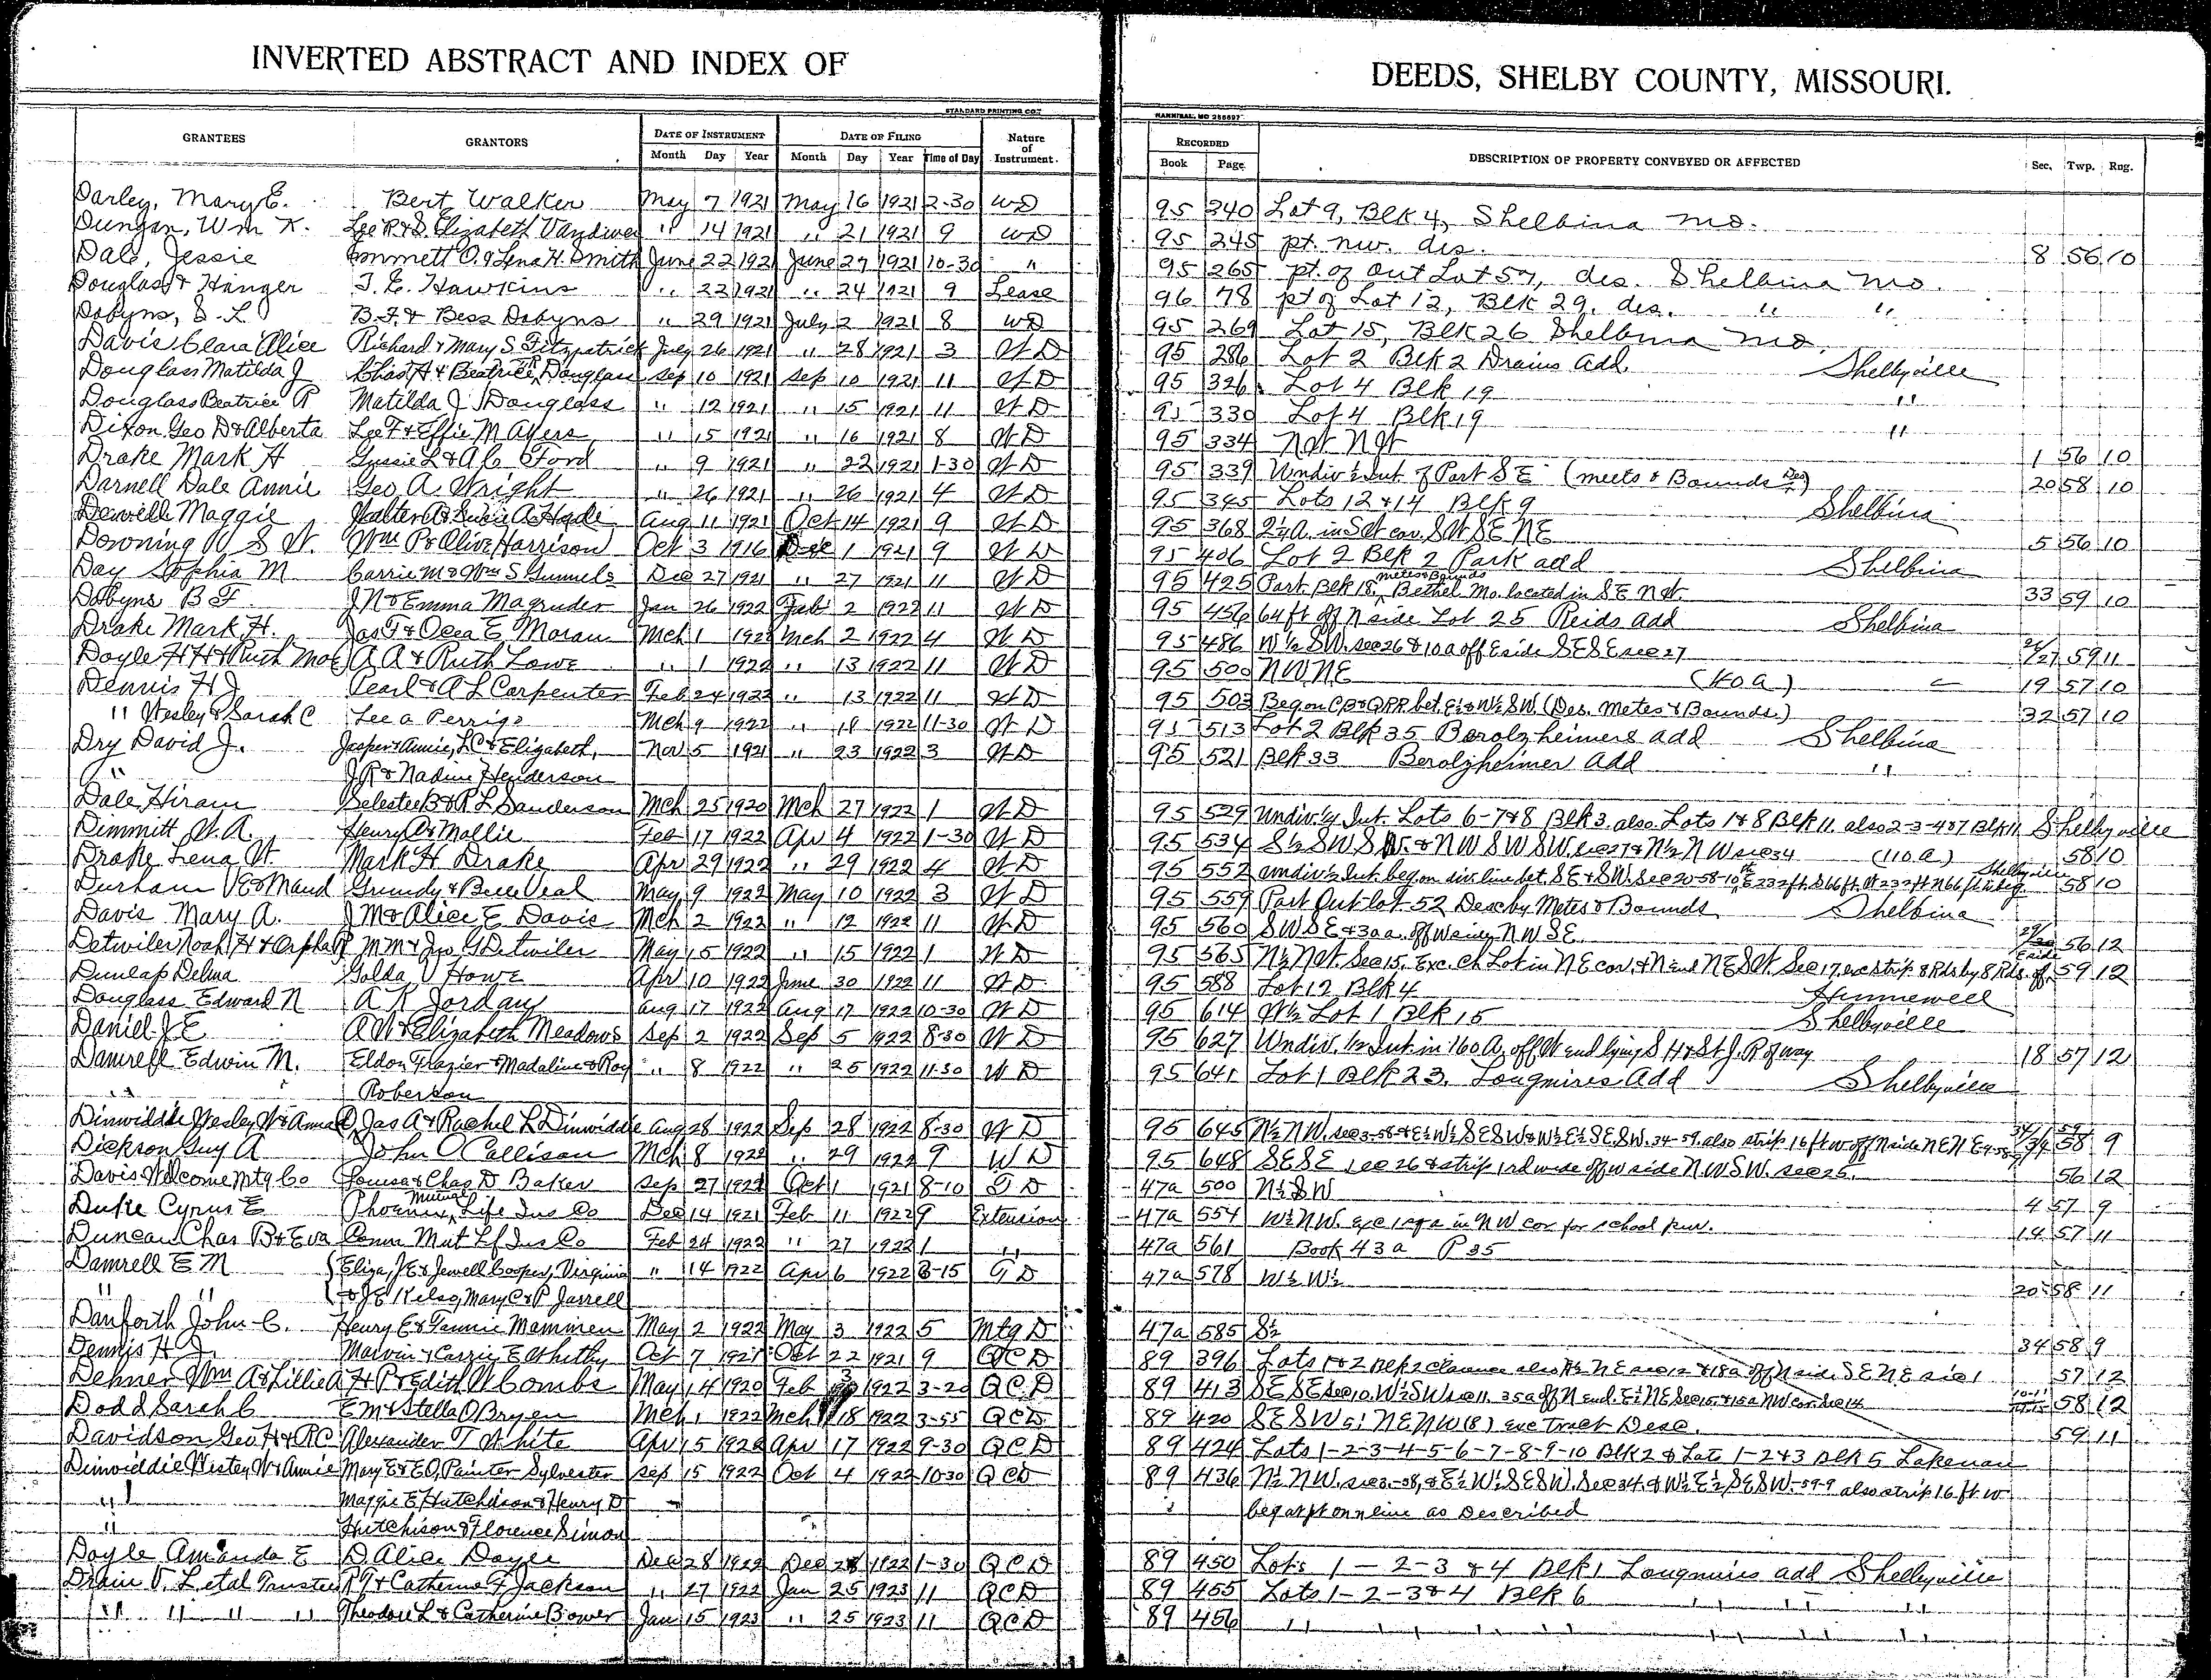 INVERTED ABSTRACT AND INDEX OF
DEEDS, SHELBY COUNTY, MISSOURI.
STANDARD PRINTING CO.
HANNIBAL, MO
GRANTEES GRANTORS DATE OF INSTRUMENT Month Day Year DATE OF FILING Month Day Year Time of Day Nature of Instrument.
RECORDED Book Page DESCRIPTION OF PROPERTY CONVEYED OR AFFECTED Sec. Twp. Rng.
Darley, Mary E. Bert Walker May 7 1921 May 16 1921 2-30 WD 95 240 Lot 9, Blk 4, Shelbina Mo.
Dungan, Wm K. Lee R & S. Elizabeth Vandiver " 14 1921 " 21 1921 9 WD 95 245 pt. nw. des. 8 56 10
Dale, Jessie Emmett O. & Lena H. Smith June 22 1921 June 27 1921 10-30 " 95 265 pt. of Out Lot 57, des. Shelbina Mo.
Douglas & Hanger T. E. Hawkins " 22 1921 " 24 1921 9 Lease 96 78 pt of Lot 12, Blk 29, des. " "
Dobyns, S. L. B. F. & Bess Dobyns " 29 1921 July 2 1921 8 WD 95 269 Lot 15, Blk 26 Shelbina Mo.
Davis Clara Alice Richard & Mary S. Fitzpatrick July 26 1921 " 28 1921 3 WD 95 286 Lot 2 Blk 2 Drains Add. Shelbyville
Douglass Matilda J Chas H & Beatrice R Douglass Sep 10 1921 Sep 10 1921 11 WD 95 326 Lot 4 Blk 19 "
Douglass Beatrice R Matilda J Douglass " 12 1921 " 15 1921 11 WD 95 330 Lot 4 Blk 19 "
Dixon Geo D & Alberta Lee F & Effie M Ayers " 15 1921 " 16 1921 8 WD 95 334 NW NW 1 56 10
Drake Mark H Gussie L & A C Ford " 9 1921 " 22 1921 1-30 WD 95 339 Undiv ½ Int. of Part SE (meets & Bounds Des) 20 58 10
Darnell Dale Annie Geo A. Wright " 26 1921 " 26 1921 4 WD 95 345 Lots 12 & 14 Blk 9 Shelbina
Dewell Maggie Walter A & Susie A Hyde Aug 11 1921 Oct 14 1921 9 WD 95 368 2¼ A. in SW cor. SW SE NE 5 56 10
Downing S W. Wm P & Olive Harrison Oct 3 1916 Dec 1 1921 9 WD 95 406 Lot 2 Blk 2 Park add Shelbina
Day Sophia M Carrie M & Wm S Gunnels Dec 27 1921 " 27 1921 11 WD 95 425 Part Blk 18, metes & Bounds Bethel Mo. located in SE NW 33 59 10
Dobyns B F J N & Emma Magruder Jan 26 1922 Feb 2 1922 11 WD 95 456 64 ft off N side Lot 25 Reids add Shelbina
Drake Mark H. Jas F & Ocea E Moran Mch 1 1922 Mch 2 1922 4 WD 95 486 W½ SW. sec 26 & 10 a off E side SE SE sec 27 26/27 59 11
Doyle H H & Ruth Mae A A & Ruth Lowe " 1 1922 " 13 1922 11 WD 95 500 NW NE (40 a) 19 57 10
Dennis H J Pearl & A L Carpenter Feb 24 1922 " 13 1922 11 WD 95 503 Beg on CB & Q RR bet. E½ & W½ SW (Des. Metes & Bounds.) 32 57 10
" Wesley & Sarah C Lee A Perrigo Mch 9 1922 " 18 1922 11-30 WD 95 513 Lot 2 Blk 35 Berolzheimers add Shelbina
Dry David J. Jasper & Annie, L C & Elizabeth, Nov 5 1921 " 23 1922 3 WD 95 521 Blk 33 Berolzheimer Add "
" J R & Nadine Henderson
Dale Hiram Celestee B & R L Sanderson Mch 25 1920 Mch 27 1922 1 WD 95 529 Undiv ¼ Int. Lots 6-7 & 8 Blk 3. also Lots 1 & 8 Blk 11. also 2-3-4 & 7 Blk 11 Shelbyville
Dimmitt W. A. Henry A & Mollie Feb 17 1922 Apr 4 1922 1-30 WD 95 534 S½ SW SW. & NW SW SW. sec 27 & N½ NW sec 34 (110 a) 58 10
Drake Lena W Mark H Drake Apr 29 1922 " 29 1922 4 WD 95 552 undiv ½ Int. beg on div. line bet. SE & SW. Sec 20-58-10 th E 232 ft. S 66 ft. W 232 ft N 66 ft to beg. Shelbyville 58 10
Durham V E & Maud Grundy & Buee Veal May 9 1922 May 10 1922 3 WD 95 559 Part Out lot 52 Desc by Metes & Bounds Shelbina
Davis Mary A. J M & Alice E Davis Mch 2 1922 " 12 1922 11 WD 95 560 SW SE & 30 a off W side NW SE 56 12
Detwiler Noah H & Orpha R M M & Jno G Detwiler May 15 1922 " 15 1922 1 WD 95 565 N½ NW. Sec 15. Exc. Ch Lot in NE cor. & N end NE SW. Sec 17, exc strip 8 Rds by 8 Rds. off E side 59 12
Dunlap Delma Golda V Howe Apr 10 1922 June 30 1922 11 WD 95 588 Lot 12 Blk 4 Hunnewell
Douglass Edward N A K Jordan Aug 17 1922 Aug 17 1922 10-30 WD 95 614 W½ Lot 1 Blk 15 Shelbyville
Daniel J E A W & Elizabeth Meadows Sep 2 1922 Sep 5 1922 8-30 WD 95 627 Undiv. ½ Int. in 160 A, off W end lying S H & St J. R of way 18 57 12
Damrell Edwin M. Eldon Frazier & Madaline & Roy " 8 1922 " 25 1922 11-30 WD 95 641 Lot 1 Blk 23. Longmires Add Shelbyville
" Roberson
Dinwiddie Wesley W & Anna D Jas A & Rachel L Dinwiddie Aug 28 1922 Sep 28 1922 8-30 WD 95 645 N½ NW. sec 3-58 & E½ W½ SE SW & W½ E½ SE SW. 34-59. also strip 16 ft w off N side NE NE 58 9
Dickson Guy A John O Callison Mch 8 1922 " 29 1922 9 WD 95 648 SE SE sec 26 & strip 1 rd wide off w side NW SW. sec 25. 56 12
Davis Welcome Mtg Co Louisa & Chas D Baker Sep 27 1921 Oct 1 1921 8-10 TD 47a 500 N½ SW 4 57 9
Duke Cyrus E Phoenix Mutual Life Ins Co Dec 14 1921 Feb 11 1922 9 Extension 47a 554 W½ NW. exc 1 sq a in NW cor for school pur. 14 57 11
Duncan Chas B & Eva Conn Mut Lf Ins Co Feb 24 1922 " 27 1922 1 " 47a 561 Book 43 a P 35
Damrell E M Eliza, J E & Jewell Cooper, Virginia " 14 1922 Apr 6 1922 8-15 GD 47a 578 W½ W½ 20 58 11
" " & J E Kelso, Mary C & P Jarrell
Danforth John C. Henry E & Fannie Mammen May 2 1922 May 3 1922 5 Mtg D 47a 585 S½ 34 58 9
Dennis H J. Marvin & Carrie E Whitby Oct 7 1921 Oct 22 1921 9 QCD 89 396 Lots 1 & 2 Blk 2 Clarence also N½ NE sec 12 & 18 a off N side SE NE sec 1 57 12
Dehner Wm A & Lillie A H P & Edith W Combs May 14 1920 Feb 1922 3-20 QCD 89 413 SE SE sec 10. W½ SW sec 11. 35 a off N end. E½ NE Sec 15. & 15 a NW cor. Sec 14 58 12
Dodd Sarah C E M & Stella O Bryen Mch 1 1922 Mch 18 1922 3-55 QCD 89 420 SE SW 5; NE NW (8) exc Tract Desc. 59 11
Davidson Geo H & R C Alexander T White Apr 15 1922 Apr 17 1922 9-30 QCD 89 424 Lots 1-2-3-4-5-6-7-8-9-10 Blk 2 & Lots 1-2 & 3 Blk 5 Lakenan
Dinwiddie Wesley W & Annie Mary E & E O Painter Sylvester Sep 15 1922 Oct 4 1922 10-30 QCD 89 436 N½ NW. sec 3-58, & E½ W½ SE SW. Sec 34. & W½ E½ SE SW. 59-9 also strip 16 ft w
" Maggie E Hutchison & Henry D beg at pt on n line as Described
" Hutchison & Florence Simon
Doyle Amanda E D Alice Doyle Dec 28 1922 Dec 28 1922 1-30 QCD 89 450 Lots 1-2-3 & 4 Blk 1 Longmires add Shelbyville
Drain V. L etal Trustees R T & Catherine F Jackson " 27 1922 Jan 25 1923 11 QCD 89 455 Lots 1-2-3 & 4 Blk 6 " " "
" " " " Theodore L & Catherine Bower Jan 15 1923 " 25 1923 11 QCD 89 456 " " " " " " " "